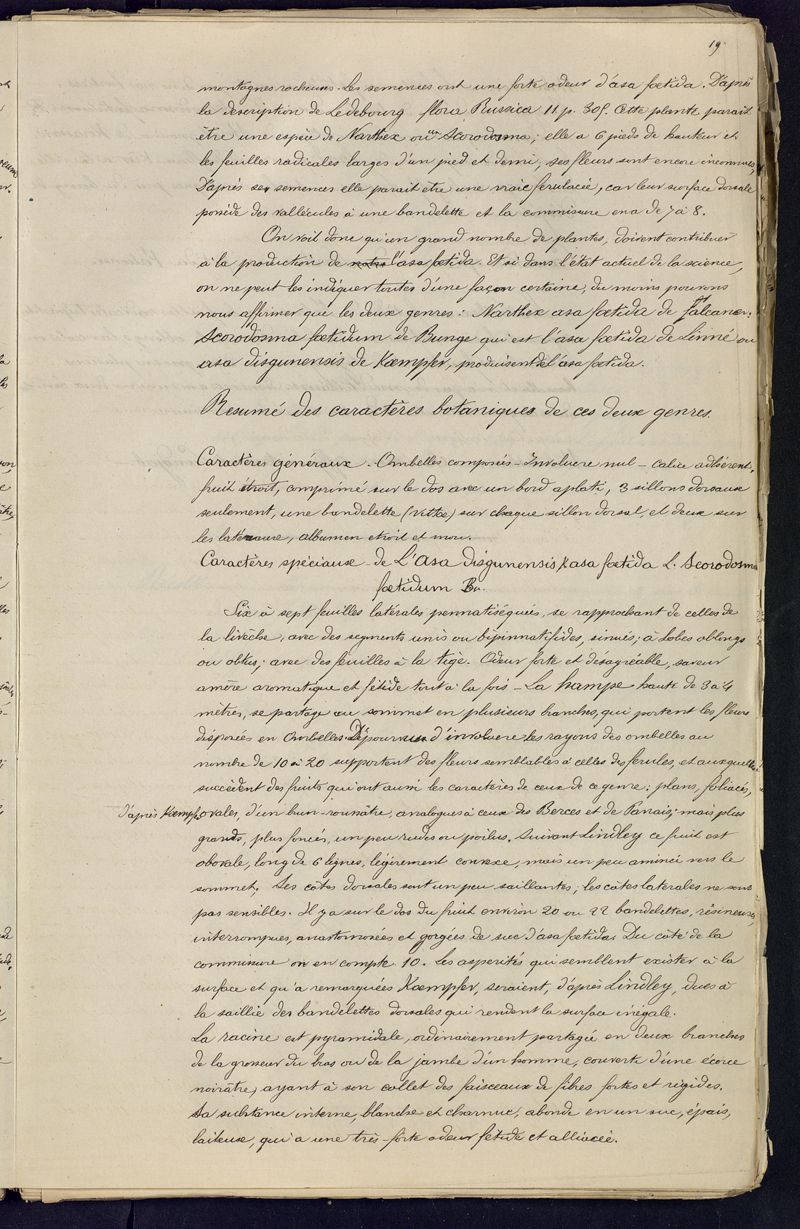 19
montagnes rocheuses. Les semences ont une forte odeur d'asa fœtida. D'après
la description de Ledebourg flora Russica 11 p. 305. Cette plante parait
être une espèce de Narthex ou un Scorodosma; elle a 6 pieds de hauteur et
les feuilles radicales larges d'un pied et demi, ses fleurs sont encore inconnues,
D'après ses semences elle parait etre une vraie ferulacée, car leur surface dorsale
possède des vallécules à une bandelette et la commissure en a de 7 à 8.
On voit donc qu'un grand nombre de plantes, doivent contribuer
à la production de l'asa fœtida. Et si dans l'état actuel de la science,
on ne peut les indiquer toutes d'une façon certaine, du moins pouvons
nous affirmer que les deux genres: Narthex asa fœtida de falconer.
Scorodosma fœtidum de Bunge qui est l'asa fœtida de Linné ou
asa disgunensis de Kœmpfer, produisent de l'asa fœtida.
Resumé des caractères botaniques de ces deux genres.
Caractères généraux. Ombelles composés - Involucre nul - calice adhérent.
fruit étroit, comprimé sur le dos avec un bord aplati, 3 sillons dorsaux
seulement, une bandelette (vittæ) sur chaque sillon dorsal, et deux sur
les lateraux, albumen etroit et mou.
Caractères spéciaux - de L'asa disgunensis K asa fœtida L. Scorodosma
fœtidum Bu.
Six à sept feuilles latérales pennatiséquées, se rapprochant de celles de
la livèche, avec des segments unis ou bipinnatifides, sinués; à lobes oblongs
ou obtus; avec des feuilles à la tige. Odeur forte et désagréable, saveur
amère aromatique et fétide tout à la fois - La hampe haute de 3 à 4
mètres, se partage au sommet en plusieurs branches, qui portent les fleurs
disposées en Ombelles. Dépourvues d'involucre les rayons des ombelles au
nombre de 10 à 20 supportent des fleurs semblables à celles des ferules, et auxquelles
succèdent des fruits qui ont aussi les caractères de ceux de ce genre; plans, foliacés,
d'après Kœmpf. ovales, d'un brun-roussâtre, analogues à ceux des Berces et de Panais; mais plus
grands, plus foncés, un peu rudes ou poilus. Suivant Lindley ce fruit est
obovale, long de 6 lignes, légèrement convexe, mais un peu aminci vers le
sommet. Ses côtes dorsales sont un peu saillantes, les côtes latérales ne sont
pas sensibles. Il y a sur le dos du fruit environ 20 ou 22 bandelettes, résineuses,
interrompues, anastomosées et gorgées de suc d'asa fœtida. Du côté de la
commissure on en compte 10. Les asperités qui semblent exister à la
surface et qu'a remarquées Kœmpfer, seraient, d'après Lindley, dues à
la saillie des bandelettes dorsales qui rendent la surface inégale.
La racine est pyramidale, ordinairement partagée en deux branches
de la grosseur du bras ou de la jambe d'un homme, couverte d'une écorce
noirâtre, ayant à son collet des faisceaux de fibres fortes et rigides.
Sa substance interne, blanche et charnue, abonde en un suc, épais,
laiteux, qui a une très-forte odeur fétide et alliacée.